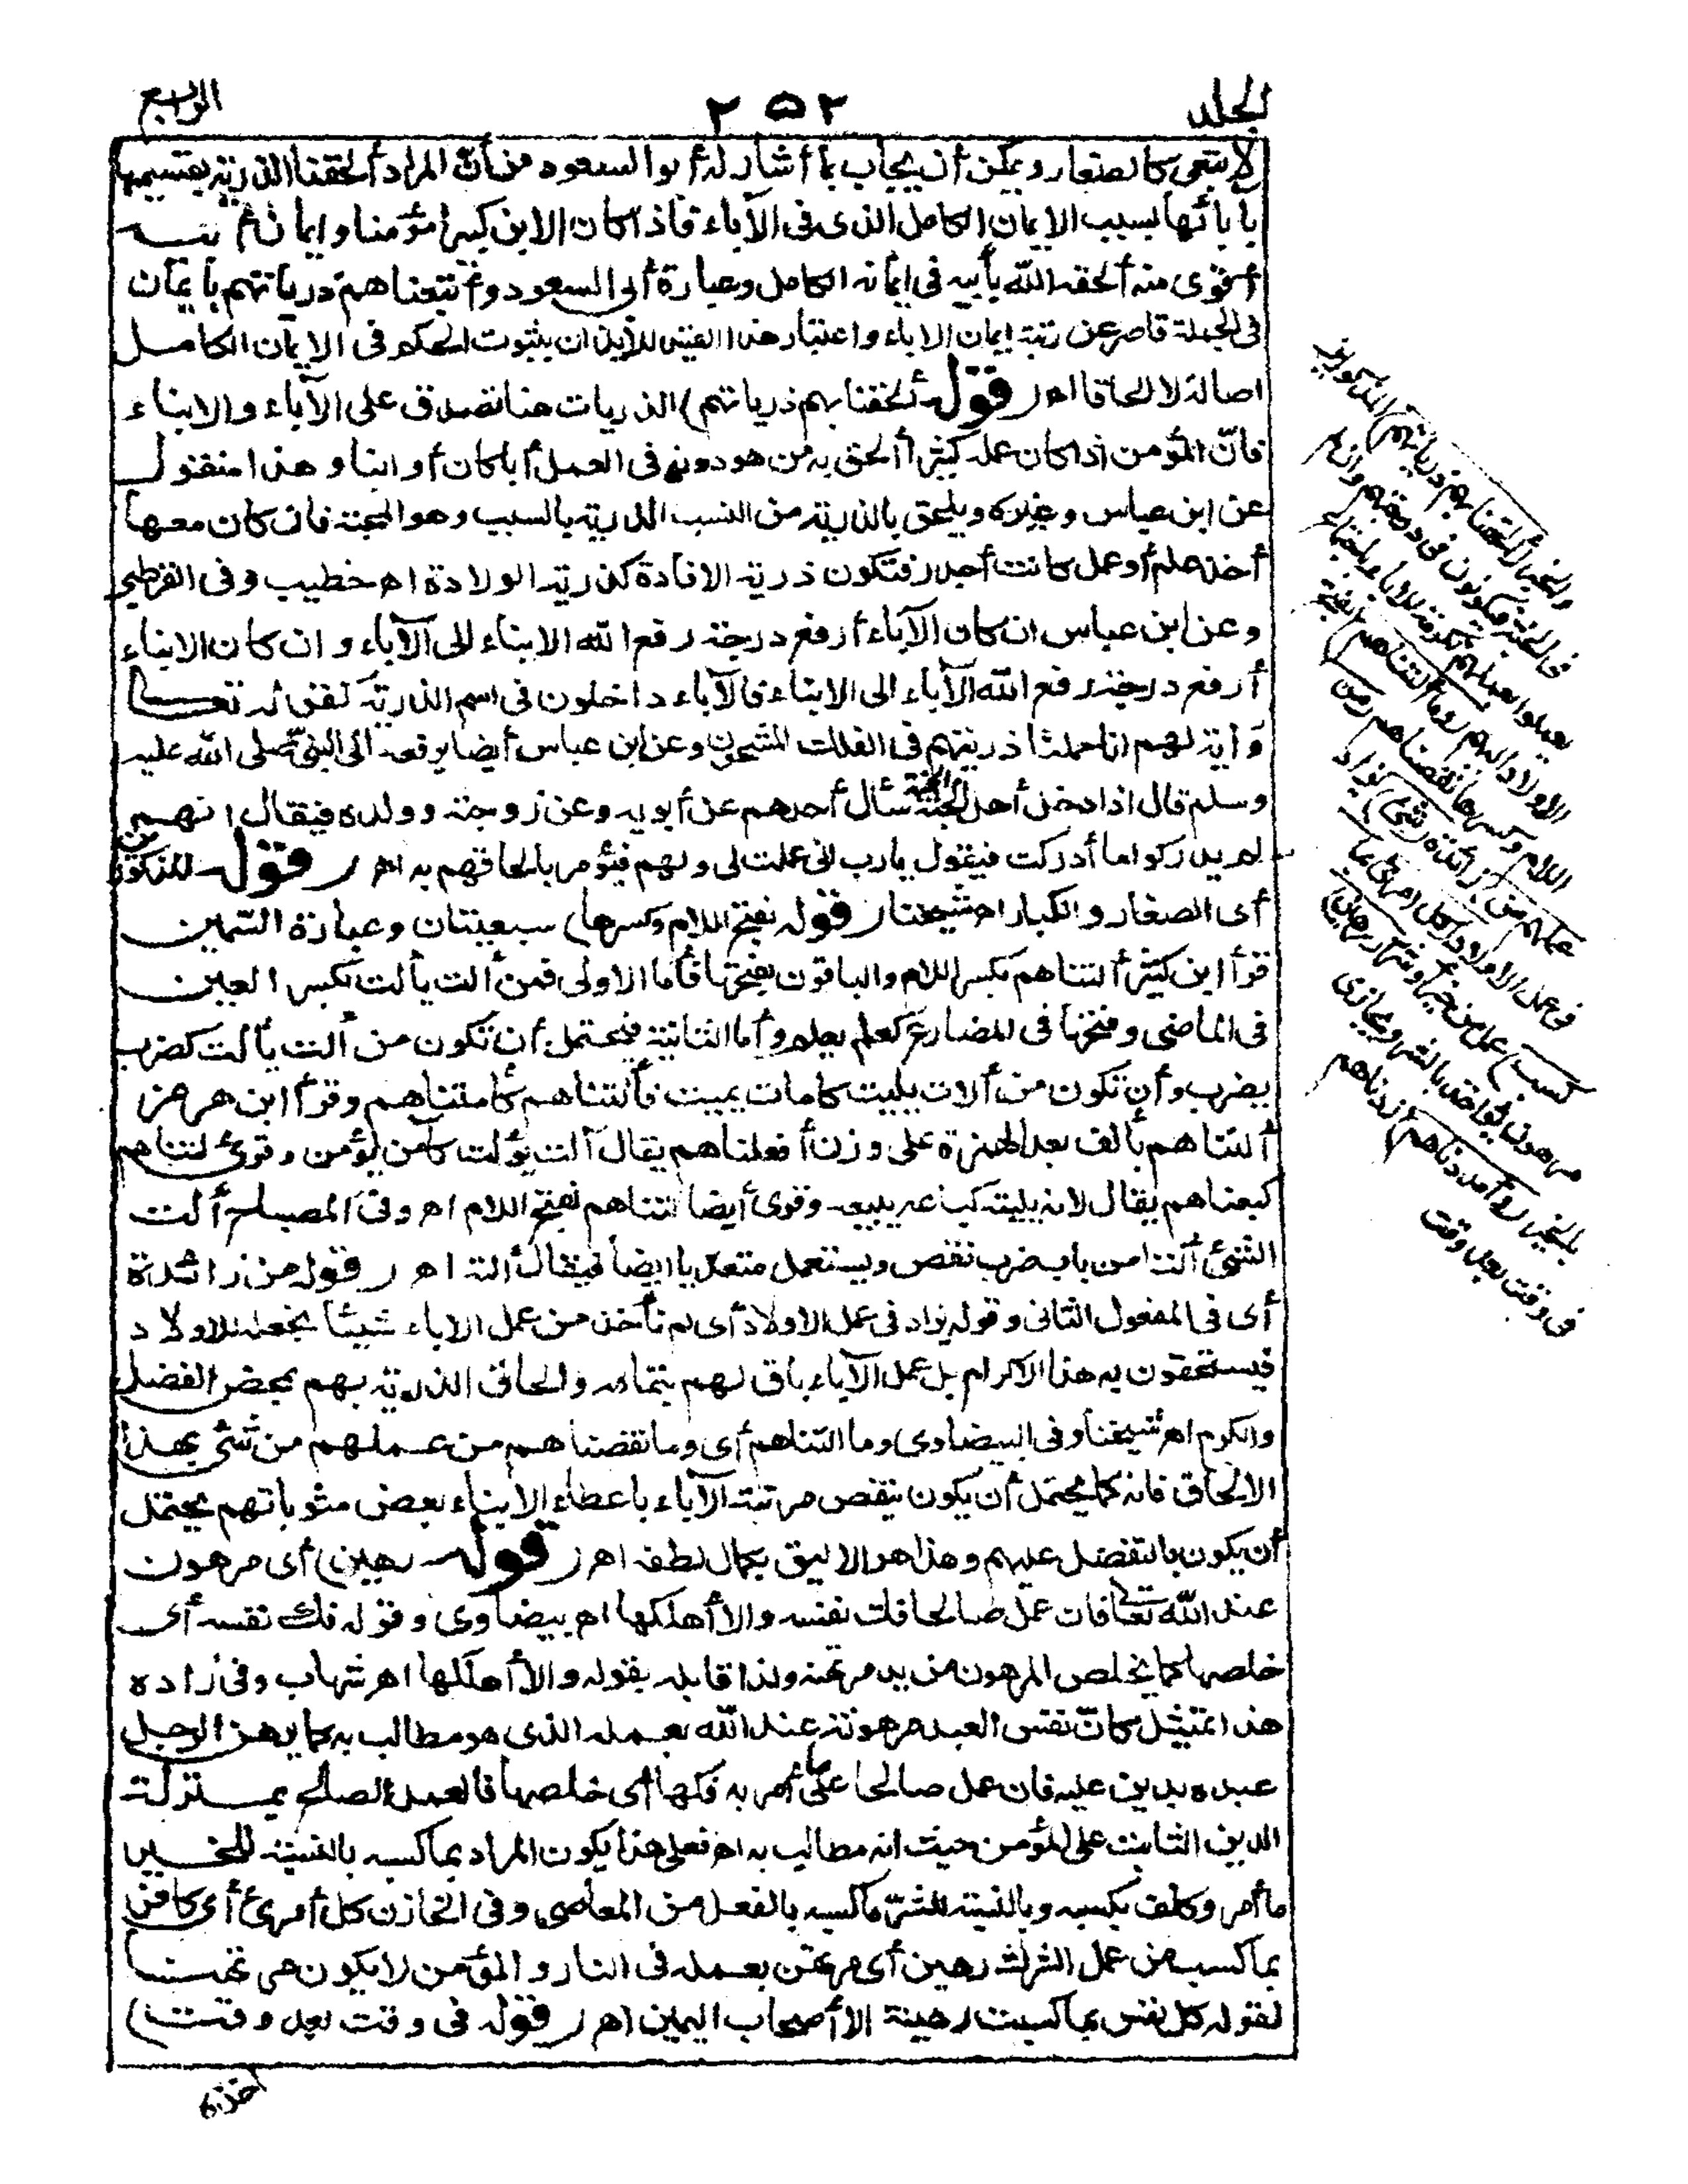 الجلد
٢٥٢
الرابع
لا يتبعى كالصغار ويمكن أن يجاب بما أشار له أبو السعود من أن المراد ألحقنا الذرية بقسميها
بآبائها بسبب الايمان الكامل الذى فى الآباء فاذا كان الابن كبيرا مؤمنا وايمان أبيه
أقوى منه ألحقه الله بأبيه فى ايمانه الكامل وعبارة أبى السعود وأتبعناهم ذرياتهم بايمان
فى الجملة قاصر عن رتبة ايمان الاباء واعتبار هذا القيد للايذان بثبوت الحكم فى الايمان الكامل
اصالة لا الحاقا اهـ (قوله ألحقنا بهم ذرياتهم) الذريات هنا تصدق على الآباء والابناء
فانّ المؤمن اذا كان عمله كثيرا ألحق به من هو دونه فى العمل أبا كان أو ابنا وهذا منقول
عن ابن عباس وغيره ويلحق بالذرية من النسب الذرية بالسبب وهو المحبة فان كان معها
أخذ علم أو عمل كانت أجدر فتكون ذرية الافادة كذرية الولادة اهـ خطيب وفى القرطبى
وعن ابن عباس ان كان الآباء أرفع درجة رفع الله الابناء الى الآباء وان كان الابناء
أرفع درجة رفع الله الآباء الى الابناء فالآباء داخلون فى اسم الذرية لقوله تعالى
وآية لهم انا حملنا ذريتهم فى الفلك المشحون وعن ابن عباس أيضا يرفعه الى النبى صلى الله عليه
وسلم قال اذا دخل أهل الجنة الجنة سأل أحدهم عن أبويه وعن زوجته وولده فيقال انهم
لم يدركوا ما أدركت فيقول يارب انى عملت لى ولهم فيؤمر بالحاقهم به اهـ (قوله المذكورين
أى الصغار والكبار اهـ شيخنا (قوله بفتح اللام وكسرها) سبعيتان وعبارة السمين
قرأ ابن كثير ألتناهم بكسر اللام والباقون بفتحها فأما الاولى فمن ألت يألت بكسر العين
فى الماضى وفتحها فى المضارع كعلم يعلم وأما الثانية فتحتمل أن تكون من ألت يألت كضرب
يضرب وأن تكون من ألات يليت كامات يميت فألتناهم كأمتناهم وقرأ ابن هرمز
آلتناهم بألف بعد الهمزة على وزن أفعلناهم يقال آلت يؤلت كآمن يؤمن وقرئ لتناهم
كبعناهم يقال لاته يليته كباعه يبيعه وقرئ أيضا لتناهم بفتح اللام اهـ وفى المصباح ألت
الشئ ألتا من باب ضرب نقص ويستعمل متعديا أيضا فيقال ألته اهـ (قوله من زائدة
أى فى المفعول الثانى وقوله يزاد فى عمل الاولاد أى لم نأخذ من عمل الاباء شيئا نجعله للاولاد
فيستحقون به هذا الاكرام بل عمل الآباء باق لهم بتمامه والحاق الذرية بهم بمحض الفضل
والكرم اهـ شيخنا وفى البيضاوى وما التناهم أى وما نقصناهم من عملهم من شئ بهذا
الالحاق فانه كما يحتمل أن يكون بنقص مرتبة الآباء باعطاء الابناء بعض مثوباتهم يحتمل
أن يكون بالتفضل عليهم وهذا هو الاليق بكمال لطفه اهـ (قوله رهين) أى مرهون
عند الله تعالى فان عمل صالحا فك نفسه والا أهلكها اهـ بيضاوى وقوله فك نفسه أى
خلصها كما يخلص المرهون من يد مرتهنه ولذا قابله بقوله والا أهلكها اهـ شهاب وفى زاده
هذا تمثيل كانّ نفس العبد مرهونة عند الله بعمله الذى هو مطالب به كما يرهن الرجل
عبده بدين عليه فان عمل صالحا على ما أمر به فكها أى خلصها فالعمل الصالح بمنزلة
الدين الثابت على المؤمن حيث انه مطالب به اهـ فعلى هذا يكون المراد بما كسبه بالنسبة للخير
ما أمر وكلف بكسبه وبالنسبة للشرّ ما كسبه بالفعل من المعاصى وفى الخازن كل أمرئ أى كافر
بما كسب من عمل الشرك رهين أى مرتهن بعمله فى النار والمؤمن لا يكون مرتهنا
لقوله كل نفس بما كسبت رهينة الا أصحاب اليمين اهـ (قوله فى وقت بعد وقت)
والخبر (ألحقنا بهم ذرياتهم) المذكورين
فى الجنة فيكونون فى درجتهم وان لم
يعملوا بعملهم تكرمة للاباء باجتماع
الاولاد اليهم (وما ألتناهم) بفتح
اللام وكسرها نقصناهم (من
عملهم من) زائدة (شئ) يزاد
فى عمل الاولاد (كل امرئ بما
كسب) عمل من خير أو شر (رهين)
مرهون يؤاخذ بالشر ويجازى
بالخير (وأمددناهم) زدناهم
فى وقت بعد وقت